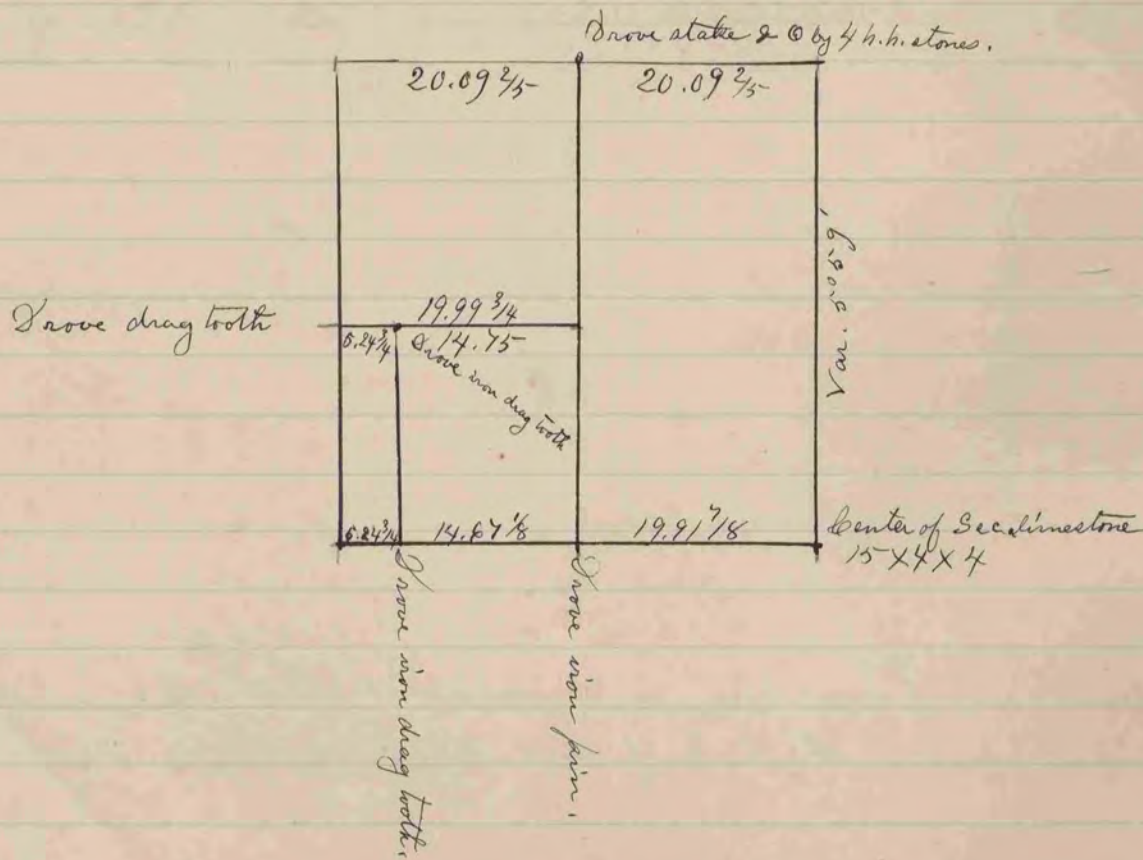 Drove stake & ⊙ by 4 h.h. stones.
20.09 2/5 20.09 2/5
Var. 5°
19.99 3/4
Drove drag tooth
5.24 3/4 14.75
Drove iron drag tooth
5.24 3/4 14.67 1/8 19.91 7/8
Center of Sec. limestone
15 X 4 X 4
Drove iron drag tooth.
Drove iron pin.